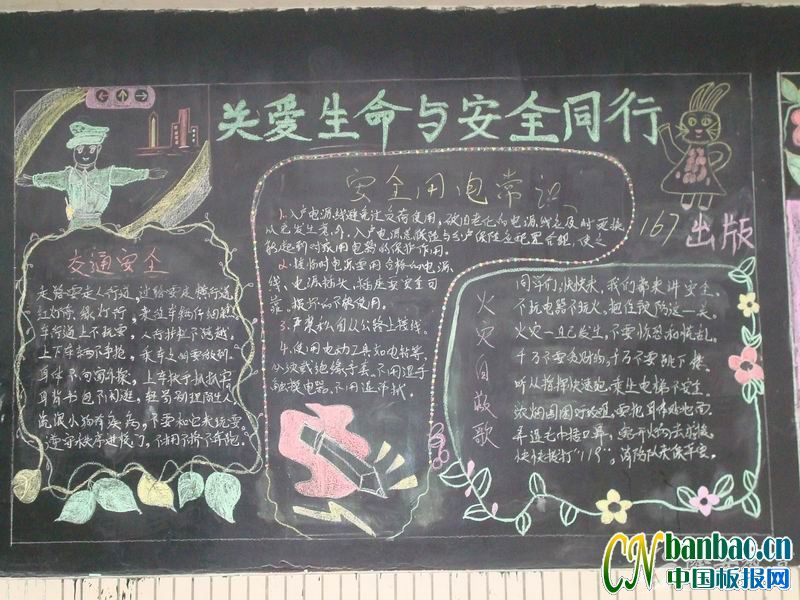 关爱生命与安全同行
167
出版
交通安全
走路要走人行道，过路要走横行道
红灯停，绿灯行，
车行道上不玩耍，人行护栏不跨越
上下车辆不争抢，乘车上
身体不向窗外探，上车扶手抓抓牢
背书包不闲逛，轻易别理陌生人
不要和它来玩耍
遵守秩序进校门，
安全用电常识
1.入户电源线避免过负荷使用，破旧老化的电源线应及时更换
以免发生意外，入户电源总保险与分户保险应配置合理，使之
能起到对家用电器的保护作用。
2.接临时电源要用合格的电源
线、电源插头，插座要安全可
靠。损坏的不能使用。
3.严禁私自从公路上接线。
4.使用电动工具如电钻等，
必须戴绝缘手套。不用湿手
触摸电器、不用湿布拭。
火灾自救歌
同学们，快快来，我们都来讲安全。
不玩电器不玩火，把住预防这一关。
火灾一旦已发生，不要惊恐和慌乱。
千万不要去别的，千万不要跳下楼。
听从指挥快速跑，乘坐电梯不安全。
浓烟
弄湿毛巾捂口鼻，
快快拨打“119”，消防队
CNbanbao.cn
中国板报网